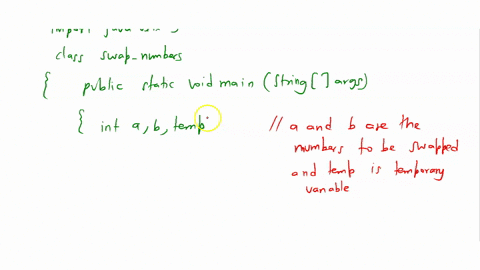 import java
class swap_numbers
{ public static void main (String[] args)
{ int a, b, temp
// a and b are the
numbers to be swapped
and temp is temporary
variable